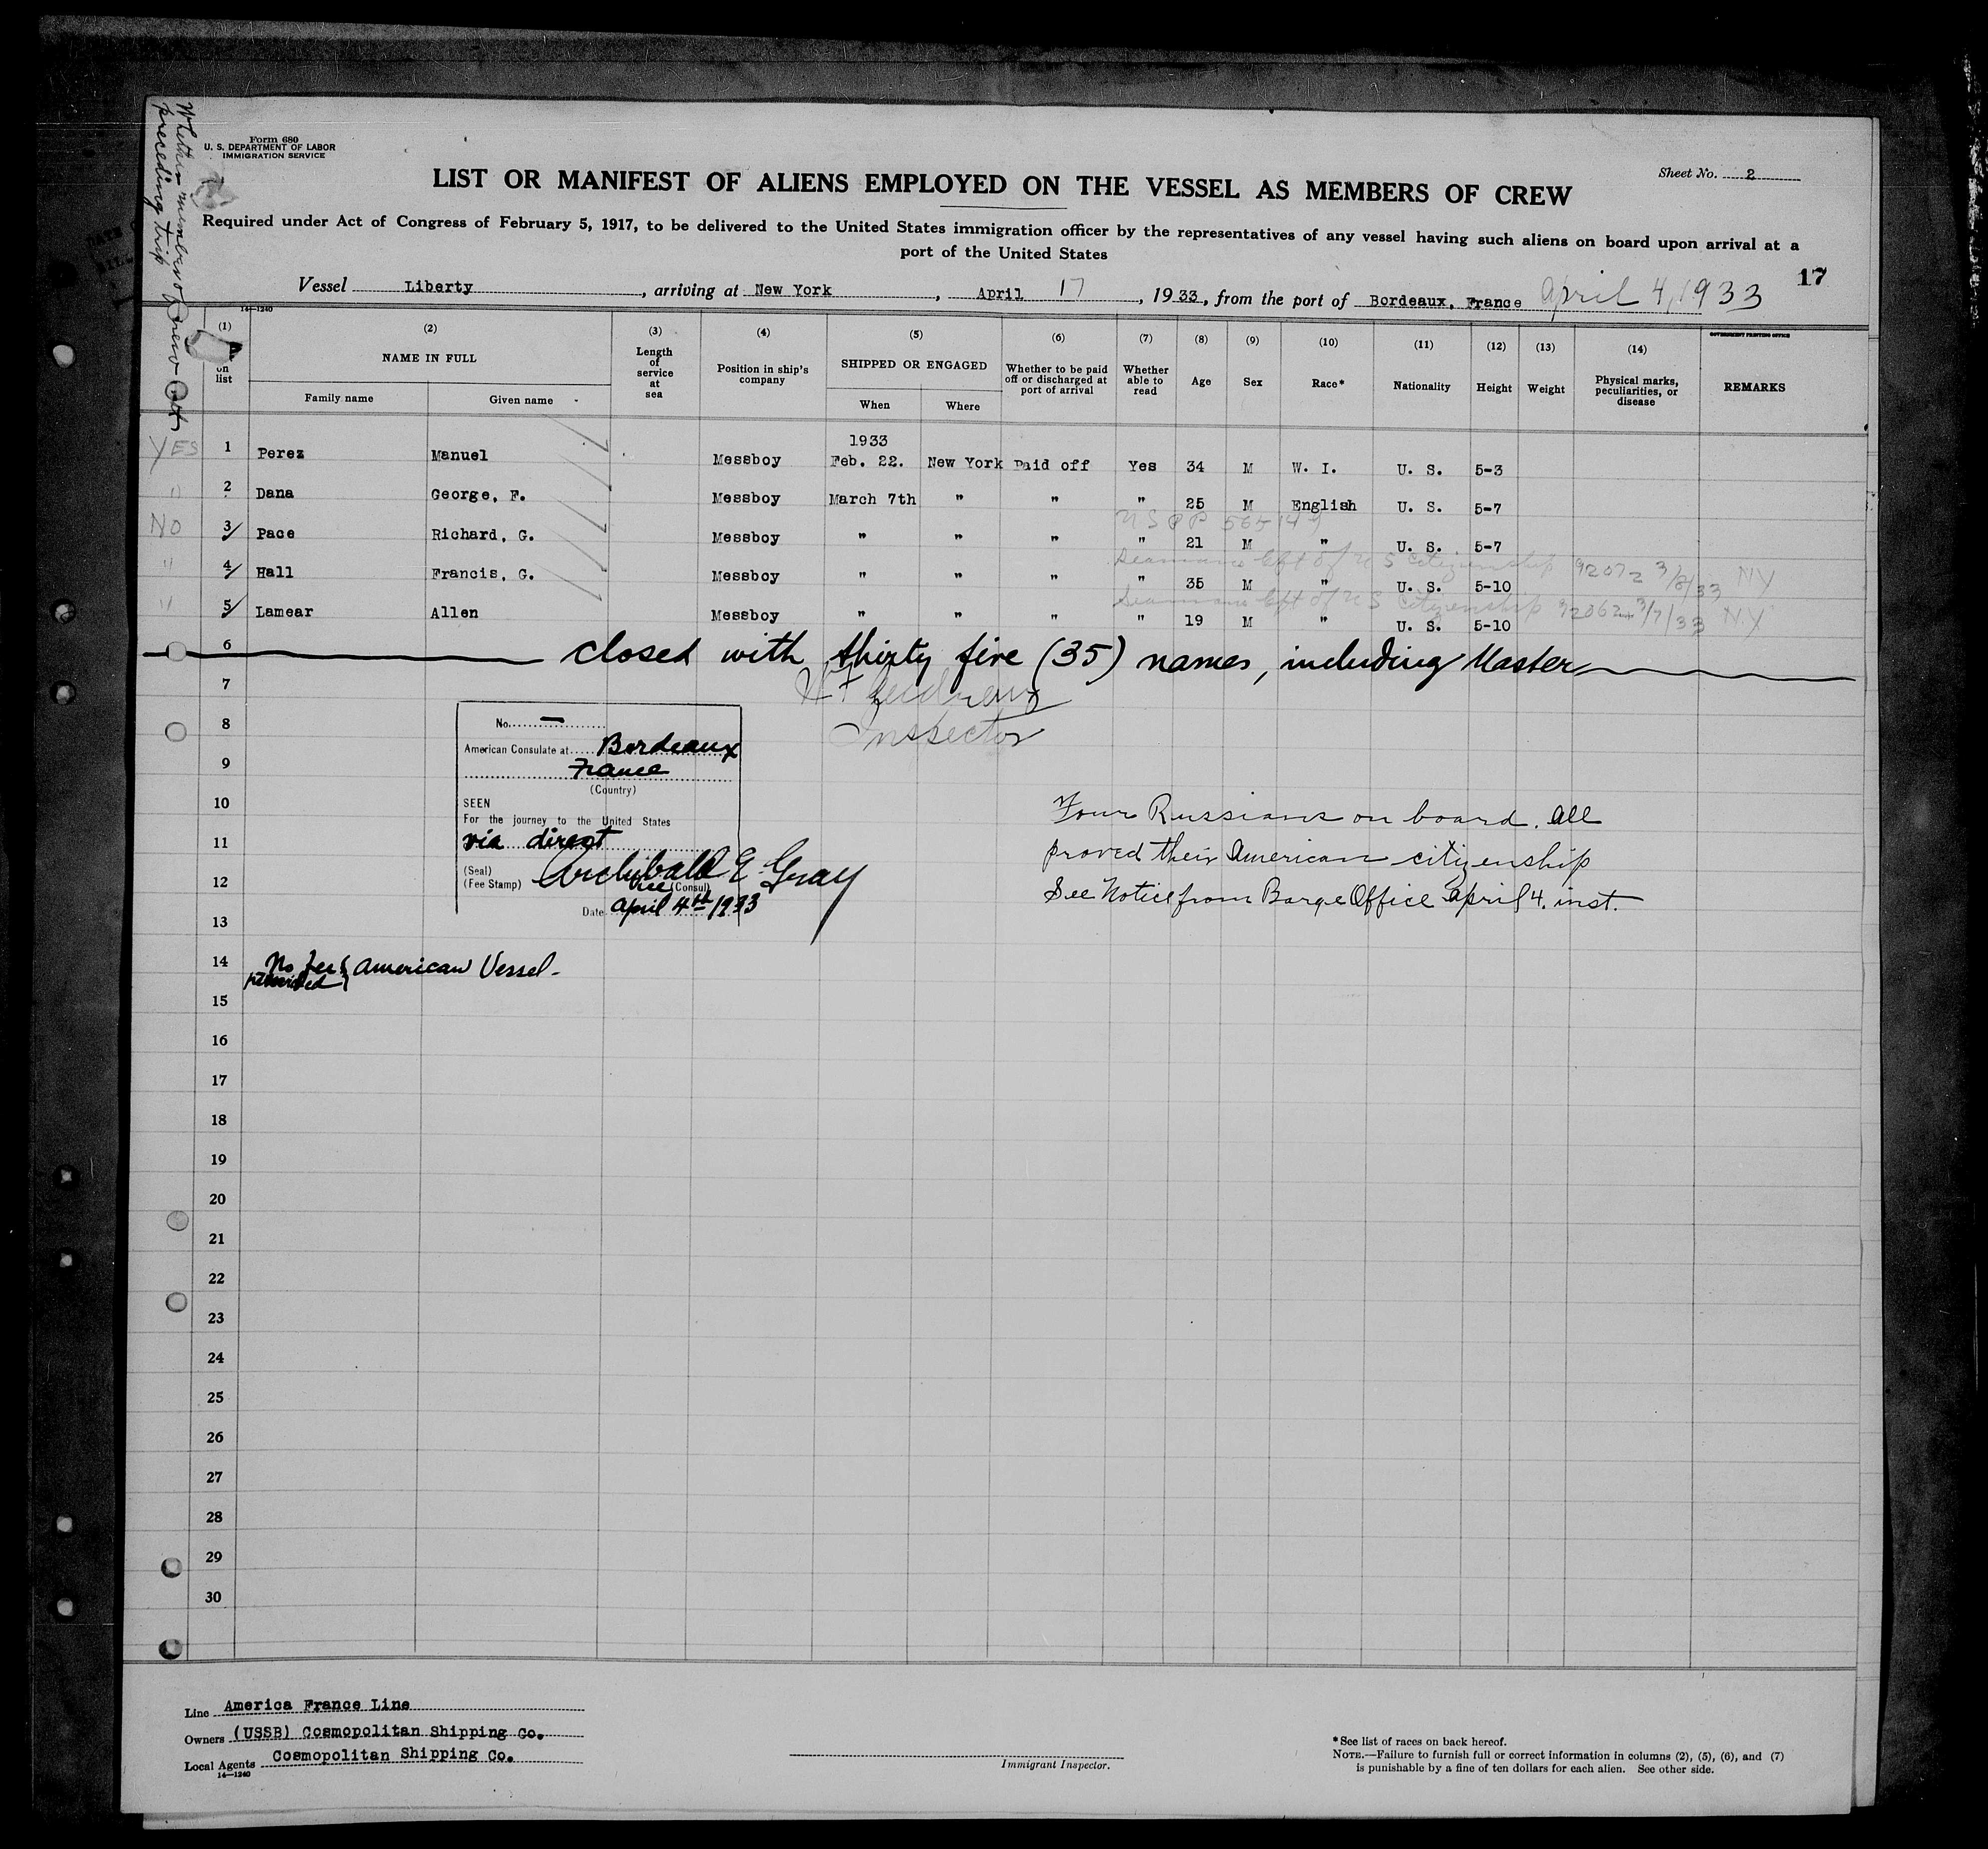 Whether member of crew on
preceding trip
Form 680
U. S. DEPARTMENT OF LABOR
IMMIGRATION SERVICE
Sheet No. 2
LIST OR MANIFEST OF ALIENS EMPLOYED ON THE VESSEL AS MEMBERS OF CREW
Required under Act of Congress of February 5, 1917, to be delivered to the United States immigration officer by the representatives of any vessel having such aliens on board upon arrival at a
port of the United States
17
Vessel Liberty, arriving at New York, April 17, 1933, from the port of Bordeaux, France April 4, 1933
14—1240
(1) (2) (3) (4) (5) (6) (7) (8) (9) (10) (11) (12) (13) (14)
GOVERNMENT PRINTING OFFICE
on list
NAME IN FULL
Family name Given name
Length of service at sea
Position in ship's company
SHIPPED OR ENGAGED
When Where
Whether to be paid off or discharged at port of arrival
Whether able to read
Age Sex Race* Nationality Height Weight
Physical marks, peculiarities, or disease
REMARKS
1933
YES 1 Perez Manuel Messboy Feb. 22. New York Paid off Yes 34 M W. I. U. S. 5-3
" 2 Dana George, F. Messboy March 7th " " " 25 M English U. S. 5-7
US PP 565149
NO 3/ Pace Richard, G. Messboy " " " " 21 M " U. S. 5-7
Seamans Cft of U S Citizenship 92072 3/8/33 NY
" 4/ Hall Francis, G. Messboy " " " " 35 M " U. S. 5-10
Seamans Cft of U S Citizenship 92062 3/7/33 NY
" 5/ Lamear Allen Messboy " " " " 19 M " U. S. 5-10
6 closed with thirty five (35) names, including Master
7
Inspector
8
No. —
American Consulate at Bordeaux
9
France
(Country)
10
SEEN
For the journey to the United States
11
via direct
(Seal)
(Fee Stamp)
Archibald E. Gray
12
Vice (Consul)
Date April 4th 1933
Four Russians on board. All
proved their American citizenship
See Notice from Barge Office April 4. inst.
13
14
No fee American Vessel.
15
16
17
18
19
20
21
22
23
24
25
26
27
28
29
30
Line America France Line
Owners (USSB) Cosmopolitan Shipping Co.
Local Agents Cosmopolitan Shipping Co.
14—1240
Immigrant Inspector.
*See list of races on back hereof.
NOTE.—Failure to furnish full or correct information in columns (2), (5), (6), and (7)
is punishable by a fine of ten dollars for each alien. See other side.